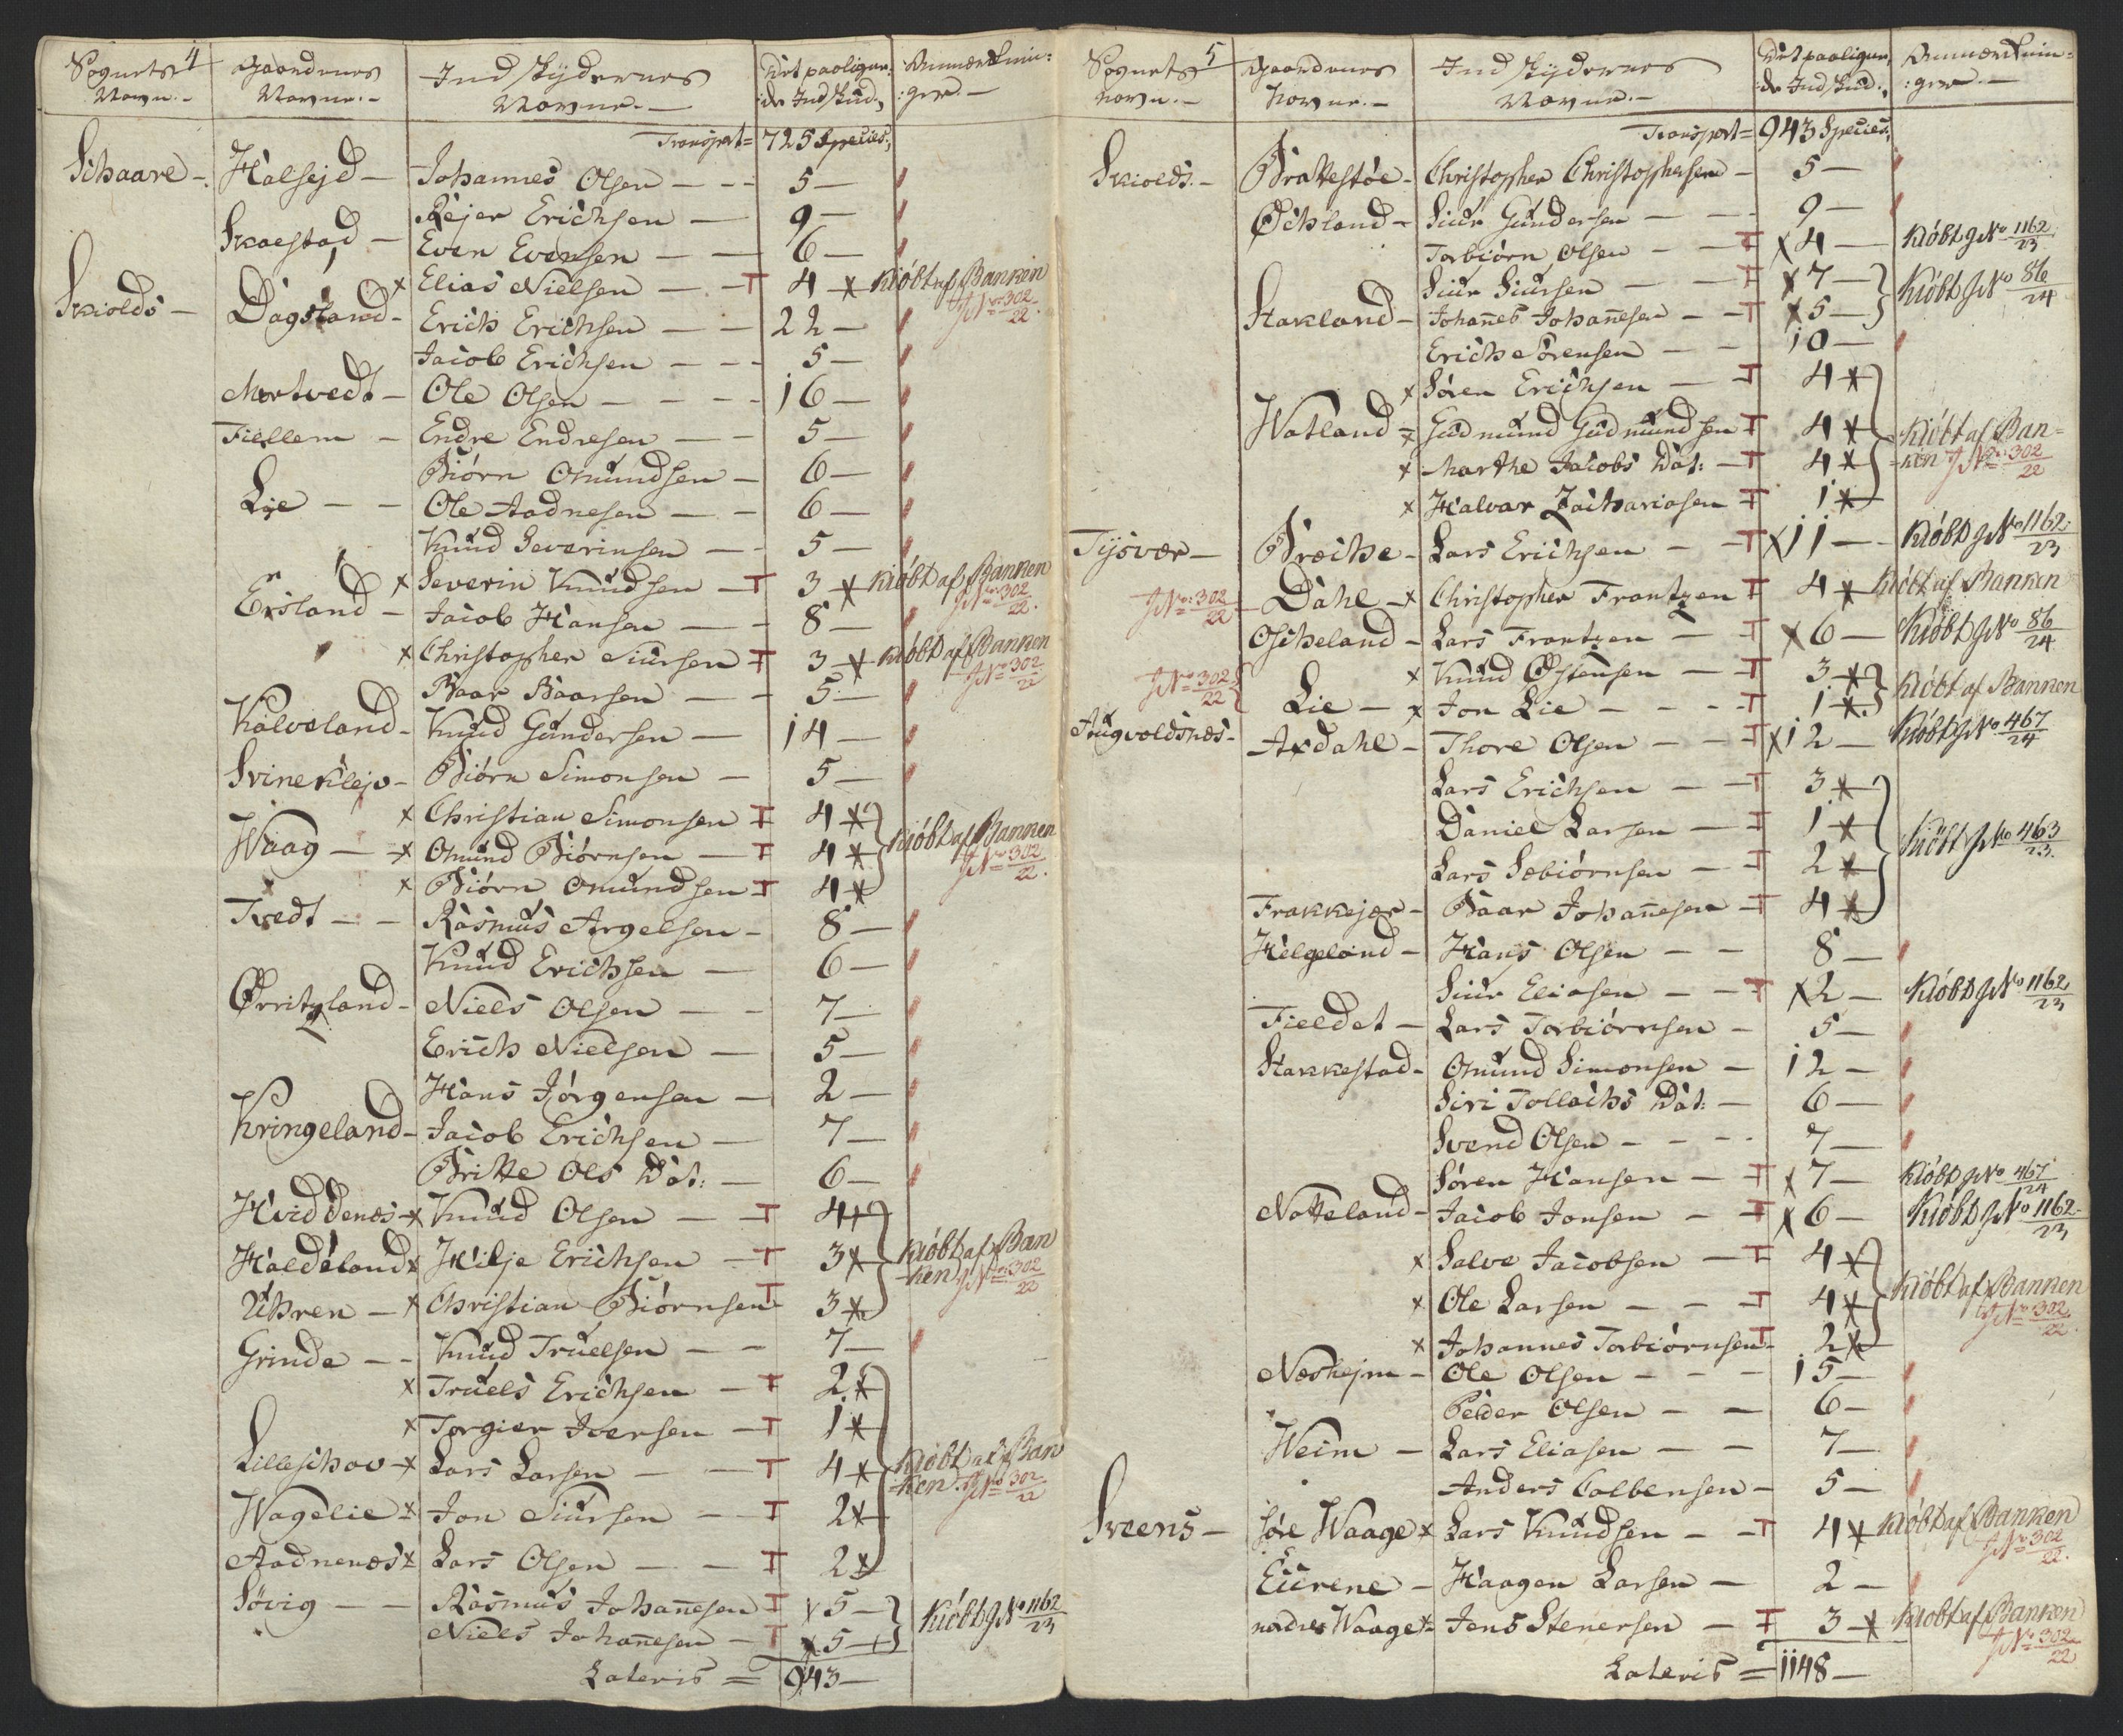 4
Sognets Navn.- Gaardenes Navne.- Indskydernes Navne.- Det paaligge:de Indskud. Anmærknin:ger.-
Transport= 725 Species.
Schaare - Halsejd - Johannes Olsen - 5 -
Rejer Erichsen - 9 -
Skaestad - Even Evensen - 6 -
Skiolds - Dagsland - x Elias Nielsen - T 4 x Kiöbt af Banken J No 302/22.
Erich Erichsen - 22 -
Jacob Erichsen - 5 -
Mortvedt - Ole Olsen - 16 -
Fiellem - Endre Endresen - 5 -
Biörn Omundsen - 6 -
Lie - Ole Aadnesen - 6 -
Knud Severinsen - 5 -
x Severin Knudsen - T 3 x Kiöbt af Banken J No 302/22.
Ersland - Jacob Hansen - 8 -
x Christopher Siursen T 3 x Kiöbt af Banken J No 302/22
Baar Baarsen - 5 -
Kalveland - Knud Gundersen - 14 -
Svinekleje - Biörn Simonsen - 5 -
x Christian Simonsen T 4 x
Waag - x Omund Biörnsen - T 4 x Kiöbt af Banken J No 302/22.
x Biörn Omundsen T 4 x
Tvedt - Rasmus Argelsen - 8 -
Knud Erichsen - 6 -
Ørritzland - Niels Olsen - 7 -
Erich Nielsen - 5 -
Hans Jörgensen - 2 -
Kringeland - Jacob Erichsen - 7 -
Britte Ols Dat: - 6 -
Hviddenæs - x Knud Olsen - T 4 x
Haldeland x Hilje Erichsen - T 3 x Kiöbt af Banken J No 302/22
Uhren - x Christian Biörnsen T 3 x
Grinde - Knud Truelsen - 7 -
x Truels Erichsen - T 2 x
x Torgier Iversen - T 1 x
Lilleschov - x Lars Larsen - T 4 x Kiöbt af Banken. J No 302/22
Wagelie x Jon Siursen - T 2 x
Aadnenæs x Lars Olsen - T 2 x
Sövig - Rasmus Johanesen T x 5 - Kiöbt J No 1162/23
Niels Johanesen - T x 5 -
Lateris = 943 -
5
Sognets Navn.- Gaardenes Navne.- Indskydernes Navne.- Det paaligge:de Indskud. Anmærknin:ger.-
Transport= 943 Species.
Skiolds. - Brattestöe - Christopher Christophersen - 5 -
Öchland - Siur Gundersen - 9 -
Torbiörn Olsen - T x 4 - Kiöbt J No 1162/23
Siur Siursen - T x 7 - Kiöbt J No 86/24
Stakland - Johanes Johanesen - T x 5 -
Erich Sörensen - 10 -
x Sören Erichsen - T 4 x
Watland - x Gudmund Gudmundsen T 4 x Kiöbt af Ban=
x Marthe Jacobs Dat: - T 4 x =ken J No 302/22
x Halvor Zachariasen T 1 x
Tysvær - Bræche - Lars Erichsen - T x 11 - Kiöbt J No 1162/23
J No 302/22 - Dahl - x Christopher Frantzen T 4 x Kiöbt af Banken
Oscheland - Lars Frantzen - T x 6 - Kiöbt J No 86/24
J No 302/22 x Knud Østensen - T 3 x Kiöbt af Banken
Lie - x Jon Lie - T 1 x
Augvoldsnæs - Axdahl - Thore Olsen - T x 12 - Kiöbt J No 467/24
Lars Erichsen - T 3 x
Daniel Larsen - T 1 x Kiöbt J No 463/23.
Lars Sebiörnsen - T 2 x
Frakkejær - Baar Johanesen - T 4 x
Helgeland - Hans Olsen - 8 -
Siur Eliasen - T x 2 - Kiöbt J No 1162/23
Fieldet - Lars Torbiörnsen - 5 -
Stakkestad - Omund Simonsen - 12 -
Siri Tollachs Dat: - 6 -
Svend Olsen - 7 -
Sören Hansen - T x 7 - Kiöbt J No 467/24
Natteland - Jacob Jonsen - T x 6 - Kiöbt J No 1162/23
x Salve Jacobsen - T 4 x
x Ole Larsen - T 4 x Kiöbt af Banken J No 302/22.
x Johannes Torbiörnsen T 2 x
Næshejm - Ole Olsen - 15 -
Peder Olsen - 6 -
Weim - Lars Eliasen - 7 -
Anders Colbensen - 5 -
Sveens - söre Waage x Lars Knudsen - T 4 x Kiöbt af Banken J No 302/22.
Eilrene - Haagen Larsen - 2 -
nordre Waage x Jens Stenersen - T 3 x Kiöbt af Banken J No 302/22
Lateris = 1148 -